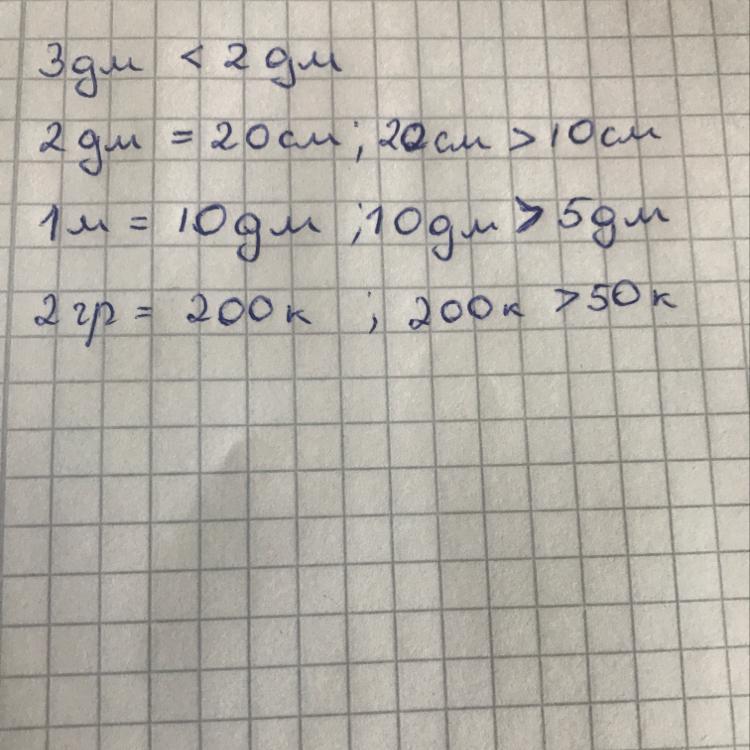 3дм < 2 дм
2 дм = 20см ; 20см > 10см
1м = 10дм ; 10дм > 5дм
2 гр = 200к ; 200к > 50к